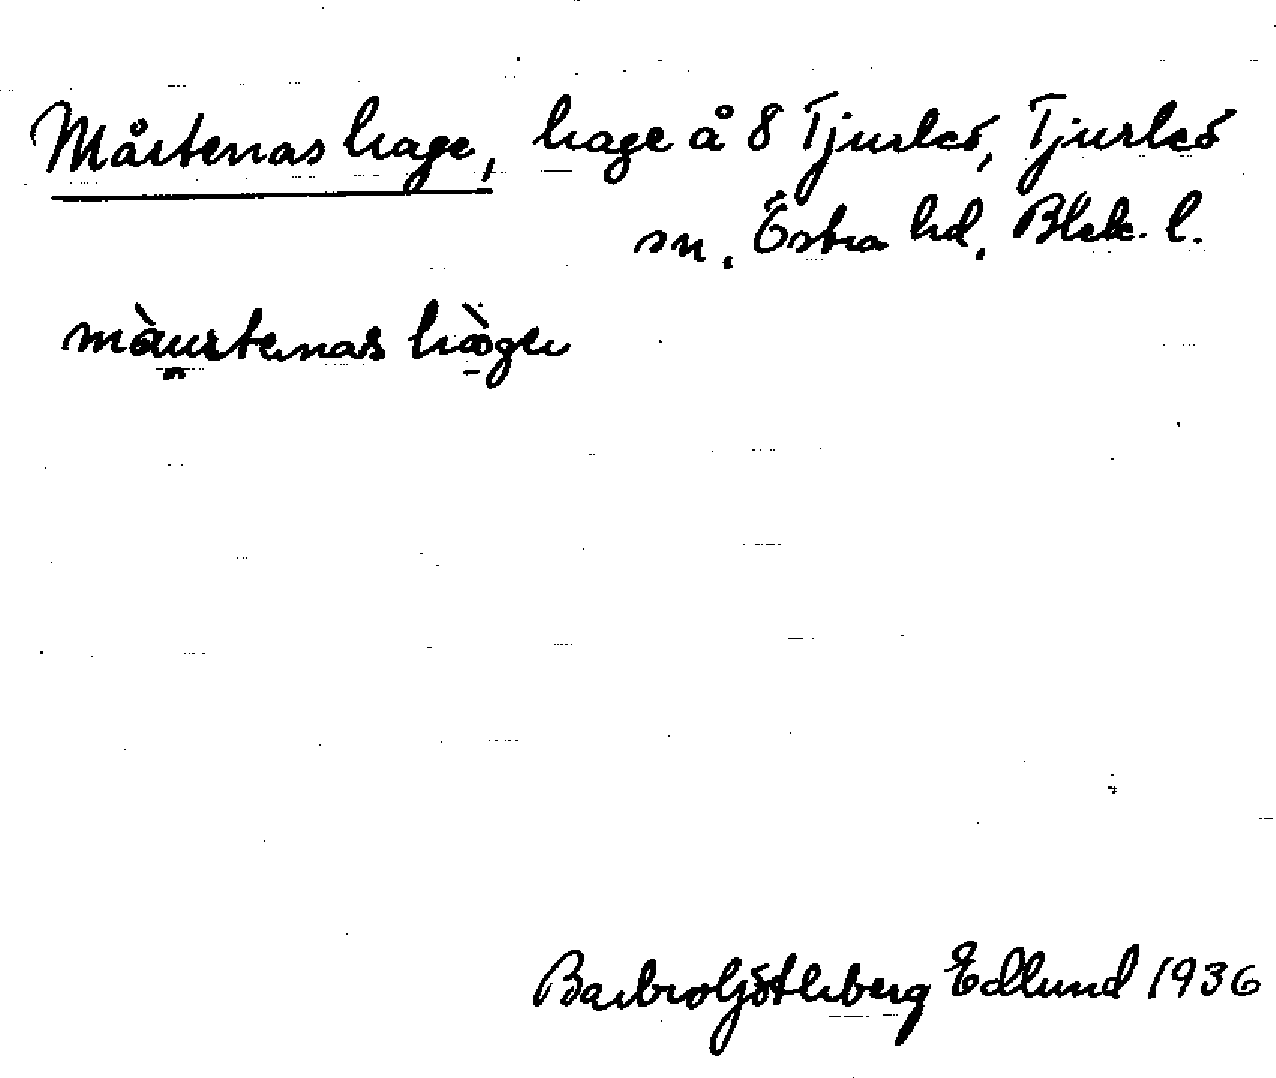 Mårtenas hage, hage å 8 Tjurkö, Tjurkö
sn, Östra hd, Blek. l.
màurtenas hàgen
Barbro Götheberg Edlund 1936